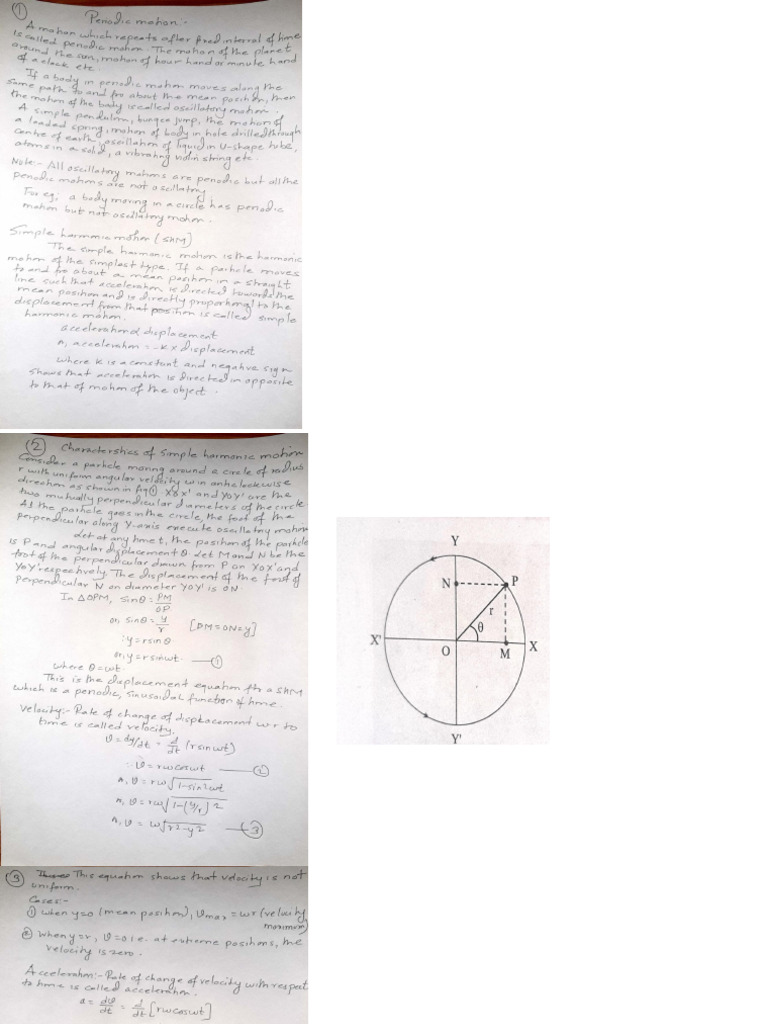 1
Periodic motion.
A motion which repeats after fixed interval of time
is called periodic motion. The motion of the planet
around the sun, motion of hour hand or minute hand
of a clock etc.
If a body in periodic motion moves along the
same path to and fro about the mean position, then
the motion of the body is called oscillatory motion.
A simple pendulum, bungee jump, the motion of
a loaded spring, motion of body in hole drilled through
centre of earth, oscillation of liquid in U-shape tube,
atoms in a solid, a vibrating violin string etc.
Note:- All oscillatory motions are periodic but all the
periodic motions are not oscillatory
For eg: a body moving in a circle has periodic
motion but not oscillatory motion.
Simple harmonic motion (SHM)
The simple harmonic motion is the harmonic
motion of the simplest type. If a particle moves
to and fro about a mean position in a straight
line such that acceleration is directed towards the
mean position and is directly proportional to the
displacement from that position is called simple
harmonic motion.
acceleration ∝ displacement
or, acceleration = -K x displacement
where K is a constant and negative sign
shows that acceleration is directed in opposite
to that of motion of the object.
2 Characterstics of simple harmonic motion
Consider a particle moving around a circle of radius
r with uniform angular velocity w in anticlockwise
direction as shown in fig 1. XOX' and YOY' are the
two mutually perpendicular diameters of the circle
As the particle goes in the circle, the foot of the
perpendicular along Y-axis execute oscillatory motion
Let at any time t, the position of the particle
is P and angular displacement θ Let M and N be the
foot of the perpendicular drawn from P on XOX' and
YOY' respectively. The displacement of the foot of
perpendicular N on diameter YOY' is ON.
In ΔOPM, sinθ = PM/OP
or, sinθ = y/r [PM = ON = y]
∴ y = r sinθ
or, y = r sinwt — 1
where θ = wt.
This is the displacement equation for a SHM
which is a periodic, sinusoidal function of time.
Velocity:- Rate of change of displacement w.r to
time is called velocity.
v = dy/dt = d/dt (r sinwt)
∴ v = rw coswt — 2
or, v = rw √1-sin2wt
or, v = rw √1-(y/r)2
or, v = w√r2-y2 — 3
Y
N
P
r
θ
X'
O
M
X
Y'
3 This equation shows that velocity is not
uniform.
Cases:-
1 when y=0 (mean position), vmax = wr (velocity
maximum)
2 when y=r, v=0 i.e. at extreme positions, the
velocity is zero.
Acceleration:- Rate of change of velocity with respect
to time is called acceleration.
a = dv/dt = d/dt [rw coswt]